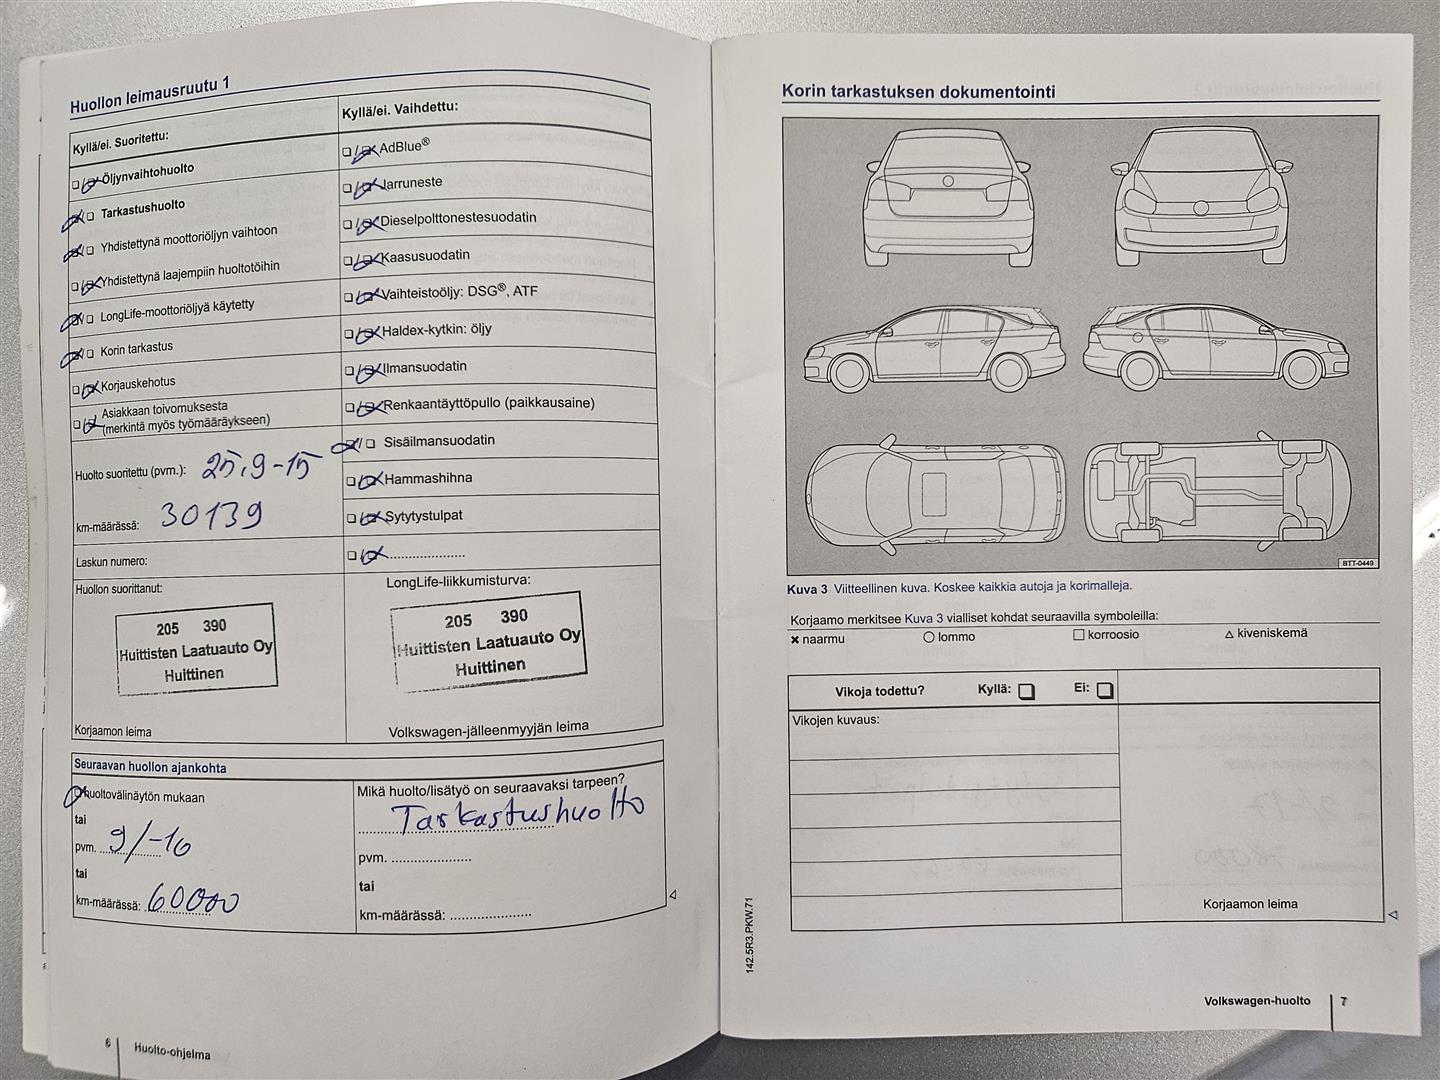 Huollon leimausruutu 1
Kyllä/ei. Suoritettu:
Öljynvaihtohuolto
Tarkastushuolto
Yhdistettynä moottoriöljyn vaihtoon
Yhdistettynä laajempiin huoltotöihin
LongLife-moottoriöljyä käytetty
Korin tarkastus
Korjauskehotus
Asiakkaan toivomuksesta
(merkintä myös työmääräykseen)
Huolto suoritettu (pvm.): 25.9-15
km-määrässä: 30139
Laskun numero:
Kyllä/ei. Vaihdettu:
AdBlue®
Jarruneste
Dieselpolttonestesuodatin
Kaasusuodatin
Vaihteistoöljy: DSG®, ATF
Haldex-kytkin: öljy
Ilmansuodatin
Renkaantäyttöpullo (paikkausaine)
Sisäilmansuodatin
Hammashihna
Sytytystulpat
....................
Huollon suorittanut:
205 390
Huittisten Laatuauto Oy
Huittinen
Korjaamon leima
LongLife-liikkumisturva:
205 390
Huittisten Laatuauto Oy
Huittinen
Volkswagen-jälleenmyyjän leima
Seuraavan huollon ajankohta
huoltovälinäytön mukaan
tai
pvm. 9/-16
tai
km-määrässä: 60000
Mikä huolto/lisätyö on seuraavaksi tarpeen?
Tarkastushuolto
pvm. ....................
tai
km-määrässä: ....................
6 Huolto-ohjelma
Korin tarkastuksen dokumentointi
BTT-0449
Kuva 3 Viitteellinen kuva. Koskee kaikkia autoja ja korimalleja.
Korjaamo merkitsee Kuva 3 vialliset kohdat seuraavilla symboleilla:
naarmu lommo korroosio kiveniskemä
Vikoja todettu? Kyllä: Ei:
Vikojen kuvaus:
Korjaamon leima
142.5R3.PKW.71
Volkswagen-huolto 7